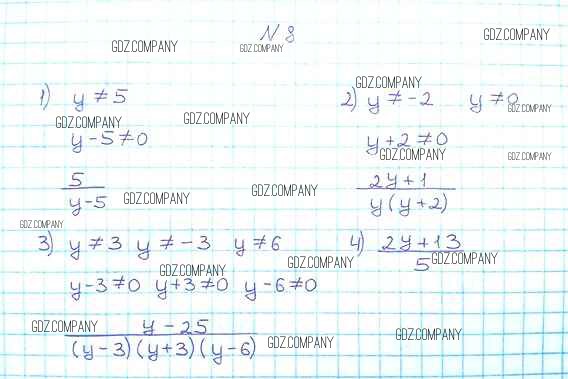 N 8
GDZ.COMPANY GDZ.COMPANY GDZ.COMPANY
1) y ≠ 5
GDZ.COMPANY GDZ.COMPANY
y - 5 ≠ 0
5
y-5 GDZ.COMPANY
GDZ.COMPANY
2) y ≠ -2 y ≠ 0
GDZ.COMPANY
y + 2 ≠ 0
GDZ.COMPANY GDZ.COMPANY
2y+1
GDZ.COMPANY
y(y+2)
GDZ.COMPANY
3) y ≠ 3 y ≠ -3 y ≠ 6
GDZ.COMPANY GDZ.COMPANY
y-3≠0 y+3≠0 y-6≠0
GDZ.COMPANY y - 25
(y-3)(y+3)(y-6) GDZ.COMPANY
4) 2y+13
5 GDZ.COMPANY
GDZ.COMPANY